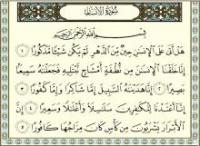 سورة الإنسان
بسم الله الرحمن الرحيم
هل أتى على الإنسن حين من الدهر لم يكن شيئا مذكورا ١
إنا خلقنا الإنسن من نطفة أمشاج نبتليه فجعلنه سميعا
بصيرا ٢ إنا هدينه السبيل إما شاكرا وإما كفورا ٣
إنا أعتدنا للكفرين سلسلا وأغللا وسعيرا ٤ إن
الأبرار يشربون من كأس كان مزاجها كافورا ٥